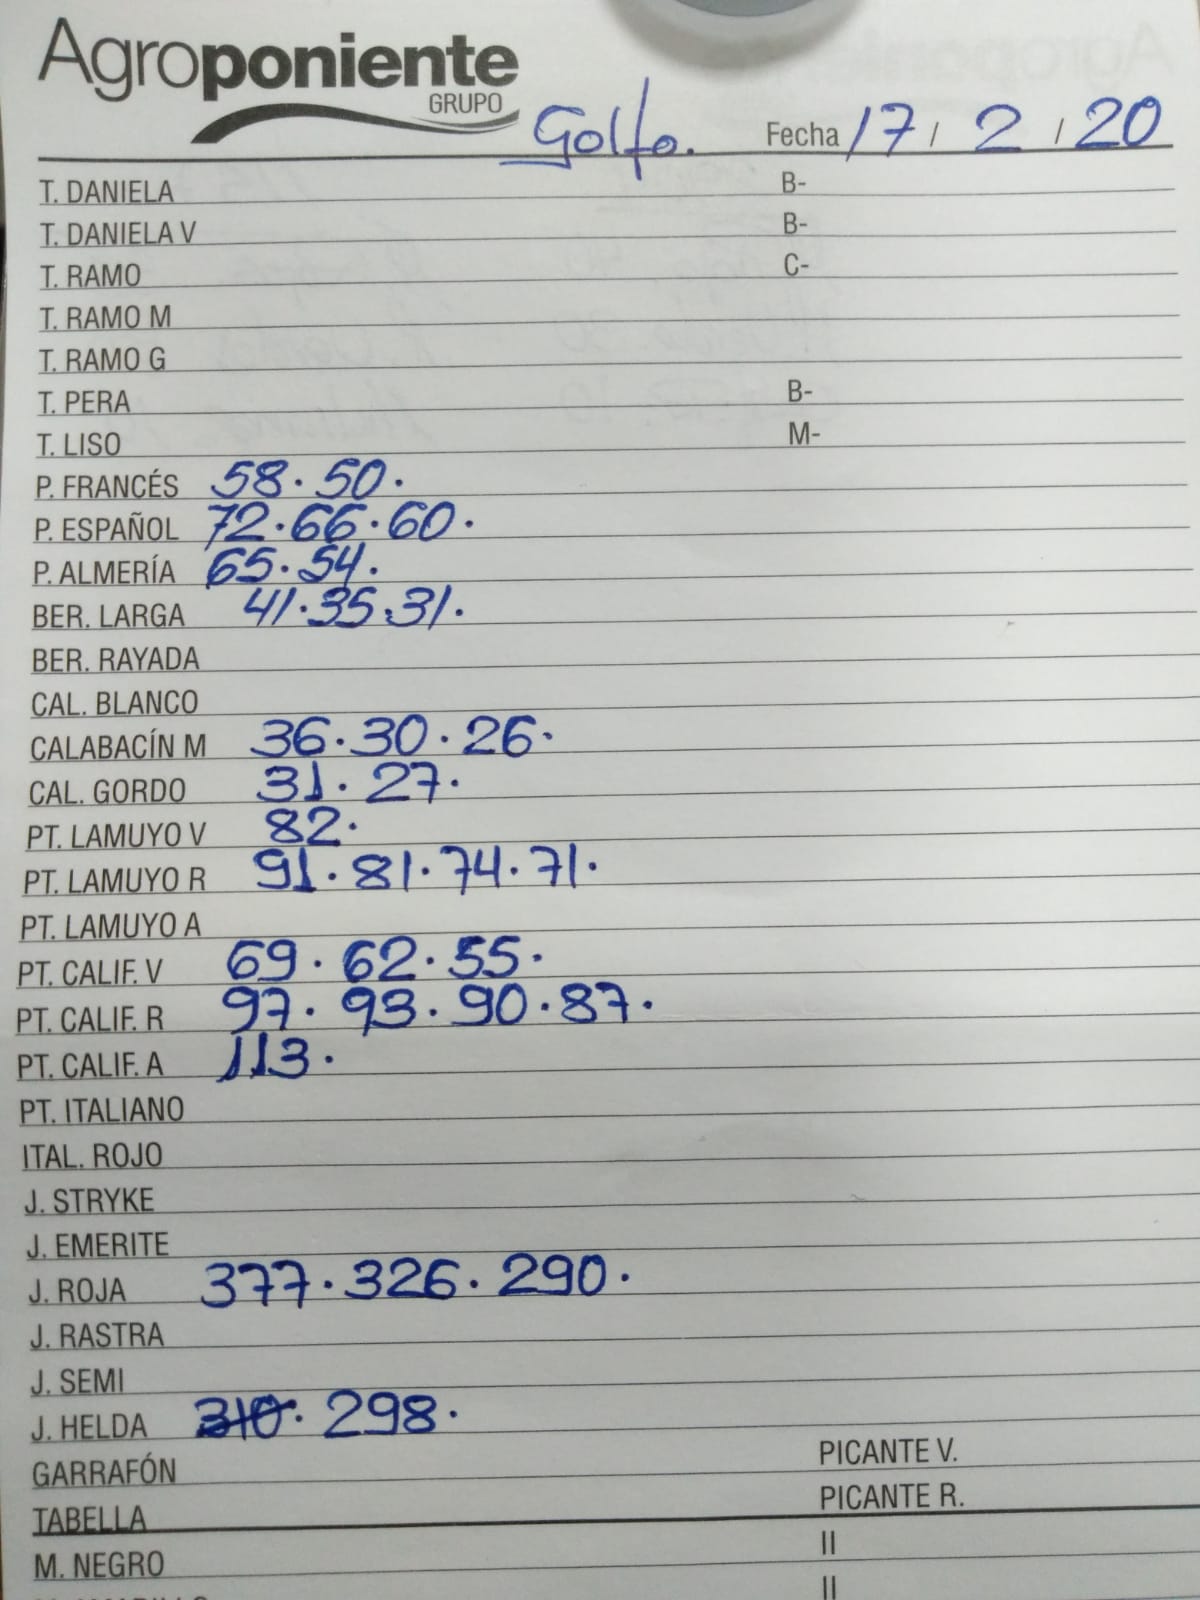 Agroponiente
GRUPO
Golfo. Fecha 17 / 2 / 20
T. DANIELA B-
T. DANIELA V B-
T. RAMO C-
T. RAMO M
T. RAMO G
T. PERA B-
T. LISO M-
P. FRANCÉS 58. 50.
P. ESPAÑOL 72. 66. 60.
P. ALMERÍA 65. 54.
BER. LARGA 41. 35. 31.
BER. RAYADA
CAL. BLANCO
CALABACÍN M 36. 30. 26.
CAL. GORDO 31. 27.
PT. LAMUYO V 82.
PT. LAMUYO R 91. 81. 74. 71.
PT. LAMUYO A
PT. CALIF. V 69. 62. 55.
PT. CALIF. R 97. 93. 90. 87.
PT. CALIF. A 113.
PT. ITALIANO
ITAL. ROJO
J. STRYKE
J. EMERITE
J. ROJA 377. 326. 290.
J. RASTRA
J. SEMI
J. HELDA 310. 298.
GARRAFÓN PICANTE V.
TABELLA PICANTE R.
M. NEGRO II
II